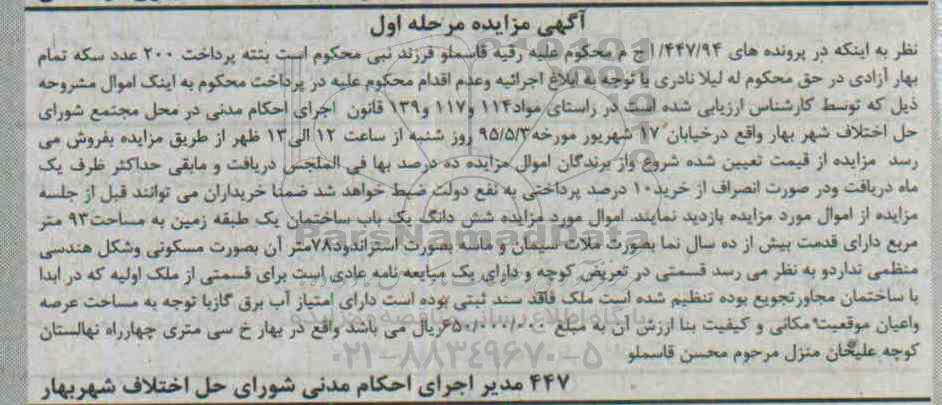 آگهی مزایده مرحله اول
نظر به اینکه در پرونده های ۴۴۷/۹۴/اج م محکوم علیه رقیه قاسملو فرزند نبی محکوم است بتته پرداخت ۲۰۰ عدد سکه تمام
بهار آزادی در حق محکوم له لیلا نادری با توجه به ابلاغ اجرائیه وعدم اقدام محکوم علیه در پرداخت محکوم به اینک اموال مشروحه
ذیل که توسط کارشناس ارزیابی شده است در راستای مواد۱۱۴ و۱۱۷ و۱۳۹ قانون اجرای احکام مدنی در محل مجتمع شورای
حل اختلاف شهر بهار واقع درخیابان ۱۷ شهریور مورخه۹۵/۵/۳ روز شنبه از ساعت ۱۲ الی۱۳ ظهر از طریق مزایده بفروش می
رسد مزایده از قیمت تعیین شده شروع واز برندگان اموال مزایده ده درصد بها فی المجلس دریافت و مابقی حداکثر ظرف یک
ماه دریافت ودر صورت انصراف از خرید۱۰ درصد پرداختی به نفع دولت ضبط خواهد شد ضمنا خریداران می توانند قبل از جلسه
مزایده از اموال مورد مزایده بازدید نمایند. اموال مورد مزایده شش دانگ یک باب ساختمان یک طبقه زمین به مساحت۹۳ متر
مربع دارای قدمت بیش از ده سال نما بصورت ملات سیمان و ماسه بصورت استراندود۷۸متر آن بصورت مسکونی وشکل هندسی
منظمی نداردو به نظر می رسد قسمتی در تعریض کوچه و دارای یک مبایعه نامه عادی است برای قسمتی از ملک اولیه که در ابدا
با ساختمان مجاورتجویع بوده تنظیم شده است ملک فاقد سند ثبتی بوده است دارای امتیاز آب برق گازبا توجه به مساحت عرصه
واعیان موقعیت مکانی و کیفیت بنا ارزش آن به مبلغ ۶۵۰/۰۰۰/۰۰۰ریال می باشد واقع در بهار خ سی متری چهارراه نهالستان
کوچه علیخان منزل مرحوم محسن قاسملو
۴۴۷ مدیر اجرای احکام مدنی شورای حل اختلاف شهربهار
ParsNamadData
۰۲۱-۸۸۳۴۹۶۷۰-۵